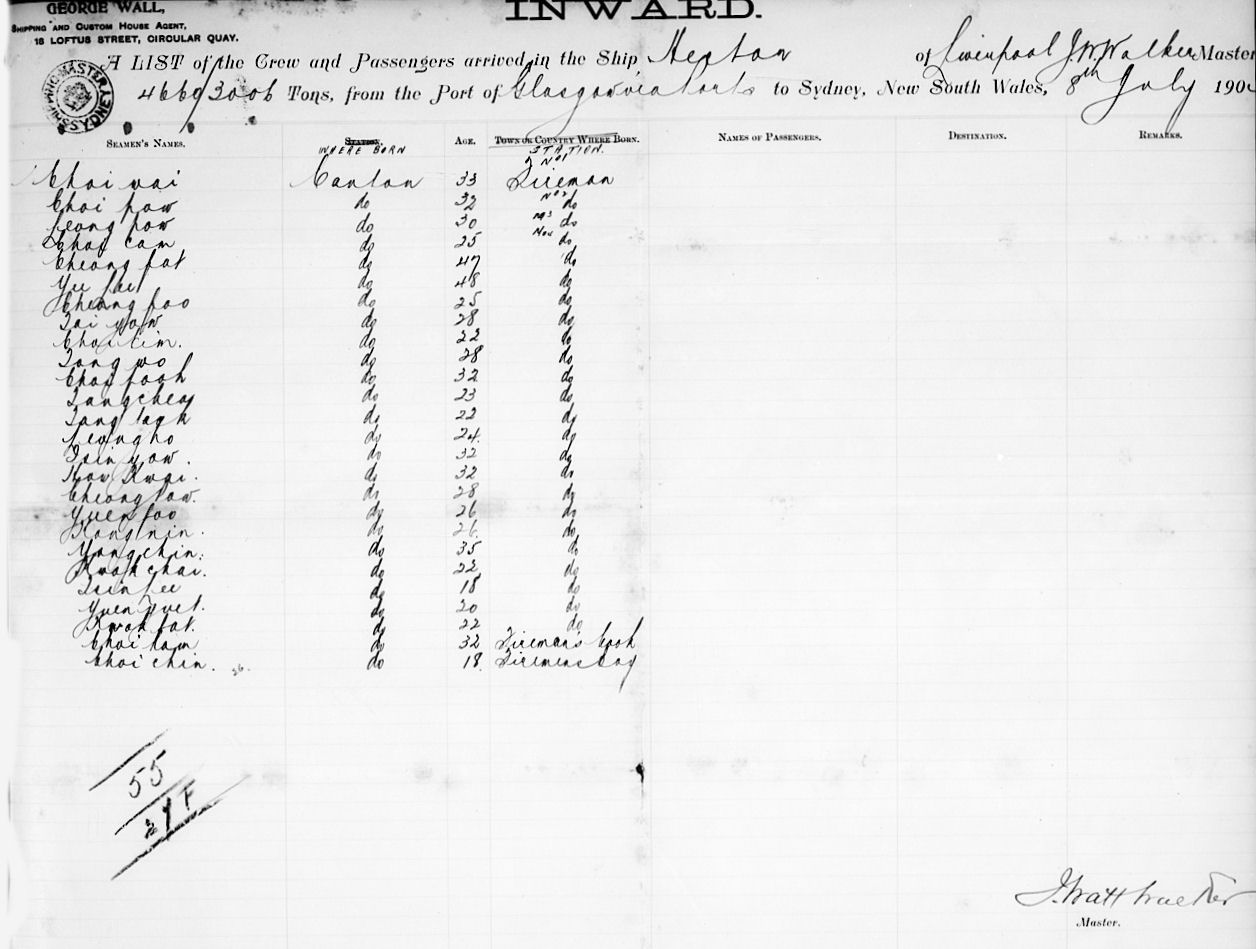 GEORGE WALL,
SHIPPING AND CUSTOM HOUSE AGENT,
18 LOFTUS STREET, CIRCULAR QUAY.
INWARD.
A LIST of the Crew and Passengers arrived in the Ship of Liverpool J.W. Walker Master
4669/3006 Tons, from the Port of Glasgow via Ports to Sydney, New South Wales, 8th July 190
SEAMEN'S NAMES. STATION. AGE. TOWN OR COUNTRY WHERE BORN. NAMES OF PASSENGERS. DESTINATION. REMARKS.
WHERE BORN STATION.
No1
Choi wai Canton 33 Fireman
Choi pow do 32 No2 do
Leong pow do 30 No3 do
Choi cam do 25 No4 do
Cheong fat do 47 do
Yee do 48 do
Cheong foo do 25 do
Tai yow do 28 do
Choi tim. do 22 do
Tong wo do 28 do
Choi fook do 32 do
Tang cheong do 23 do
Tong do 22 do
Leong ho do 24 do
Tsin yow. do 32 do
How Kwai. do 32 do
Cheong do 28 do
Yuen foo do 26 do
Kong nin. do 26 do
Yong chin. do 35 do
Kwok chai. do 22 do
Tsin do 18 do
Yuen do 20 do
Kwok fat. do 22 do
Choi ham do 32 Fireman's Cook
Choi chin. do 18 Firemens boy
26.
55
Master.